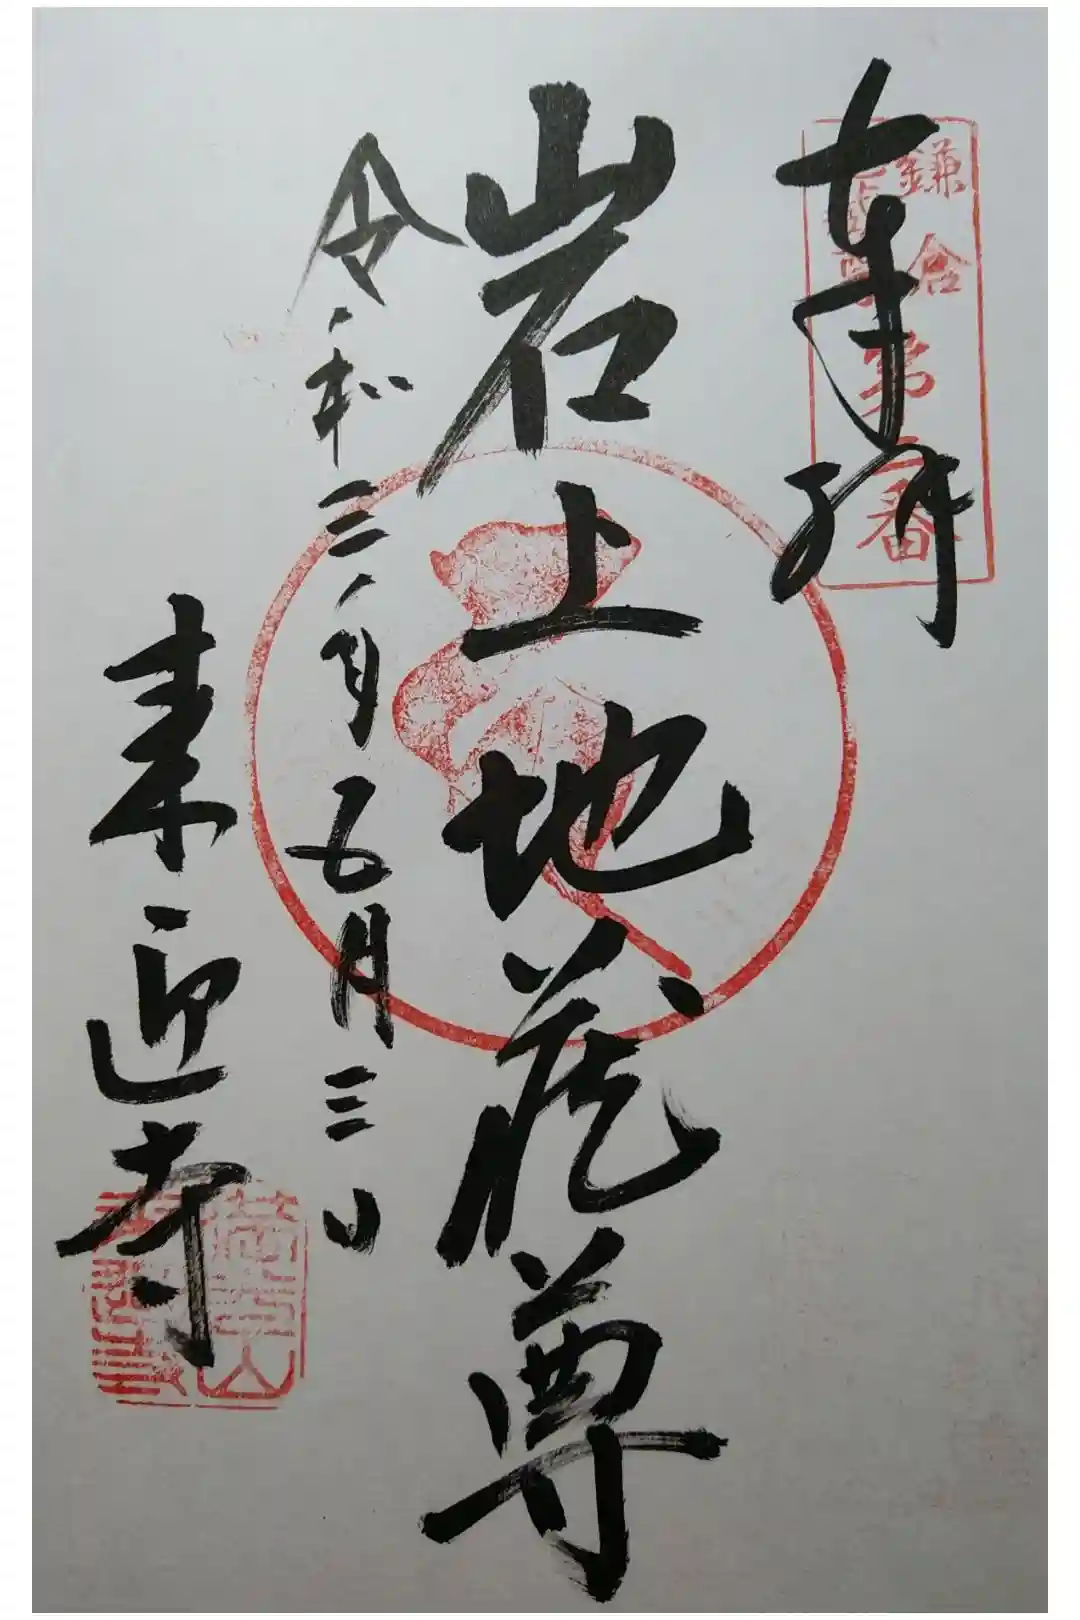 奉拝
鎌倉
第二番
岩上地蔵尊
令和三年五月三日
来迎寺